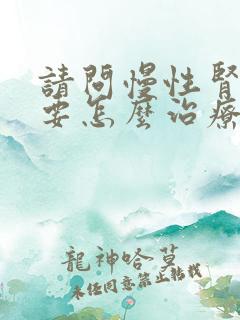 請問慢性腎
要怎麼治療
龍神哈莫
未經同意禁止轉載